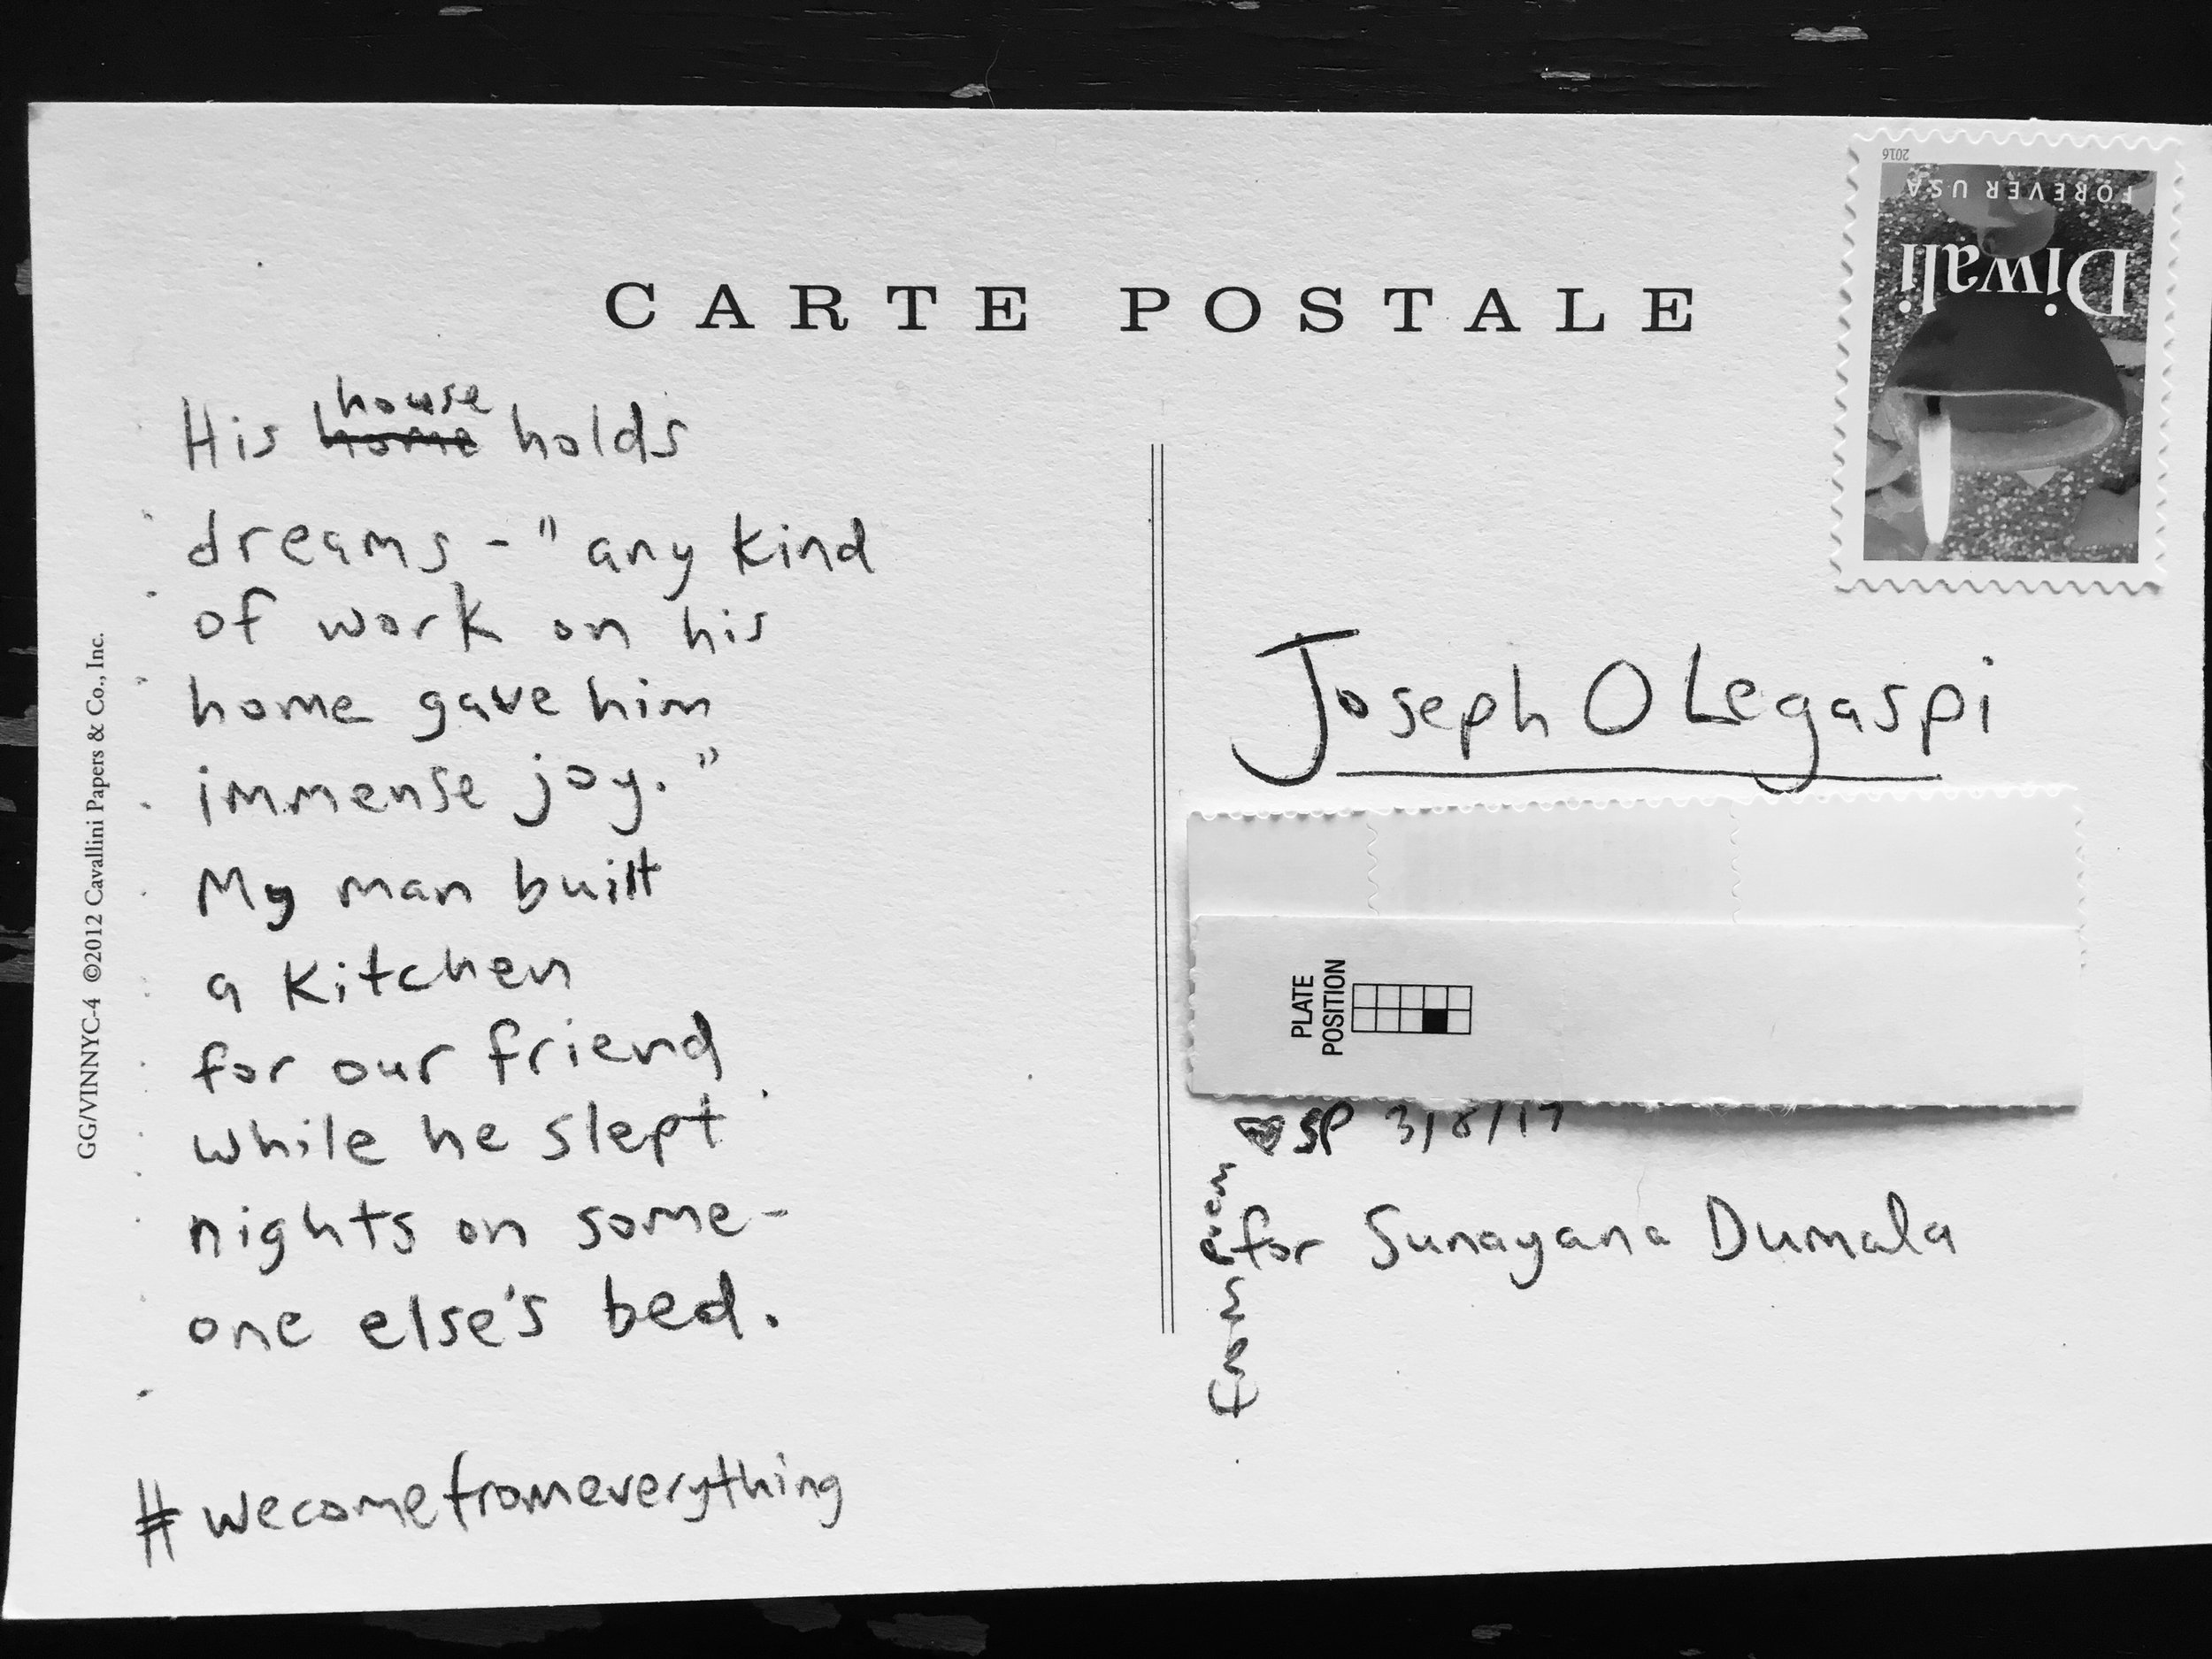 CARTE POSTALE
2016
FOREVER USA
Diwali
house
His home holds
dreams - "any kind
of work on his
home gave him
immense joy."
My man built
a kitchen
for our friend
while he slept
nights on some-
one else's bed.
#wecomefromeverything
GG/VINNYC-4 ©2012 Cavallini Papers & Co., Inc.
Joseph O Legaspi
PLATE
POSITION
SP 3/8/17
for Sunayana Dumala